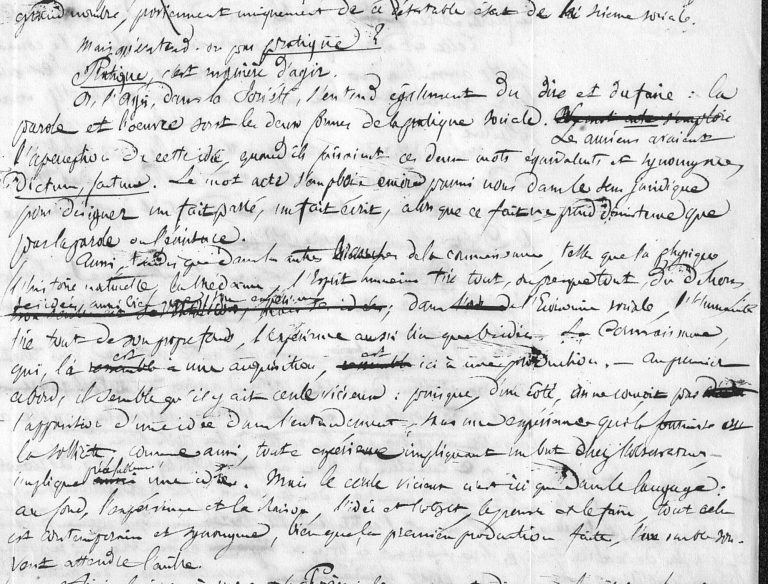 grand nombre, proviennent uniquement de ce détestable état de la science sociale.
Mais qu'entend-on par pratique ?
Pratique, c'est manière d'agir.
Or, l'agir, dans la Société, s'entend également du dire et du faire : la
parole et l'œuvre sont les deux formes de la pratique sociale.
Les anciens avaient
l'aperception de cette idée, quand ils faisaient ces deux mots équivalents et synonymes,
Dictum, factum. Le mot acte s'emploie encore parmi nous dans le sens juridique
pour désigner un fait passé, un fait écrit, alors que ce fait ne prend d'existence que
par la parole ou l'écriture.
Aussi, tandis que dans les autres branches de la connaissance, telle que la physique
l'histoire naturelle, l'Esprit humain tire tout, ou presque tout, du dehors,
dans l'Economie sociale, l'Humanité
tire tout de son propre fonds, l'expérience aussi bien que l'idée. La Connaissance,
qui, là est une acquisition, est ici une production. — Au premier
abord, il semble qu'il y ait cercle vicieux : puisque, d'un côté, on ne conçoit pas
l'apparition d'une idée dans l'entendement, sans une expérience qui la
la sollicite, comme aussi, toute expérience impliquant un but chez l'observateur
implique une idée. Mais le cercle vicieux n'est ici que dans le langage.
au fond, l'expérience et la raison, l'idée et l'objet, le penser et le faire, tout cela
est contemporain et synonyme, bien que la première production faite, l'une semble sou-
vent attendre l'autre.